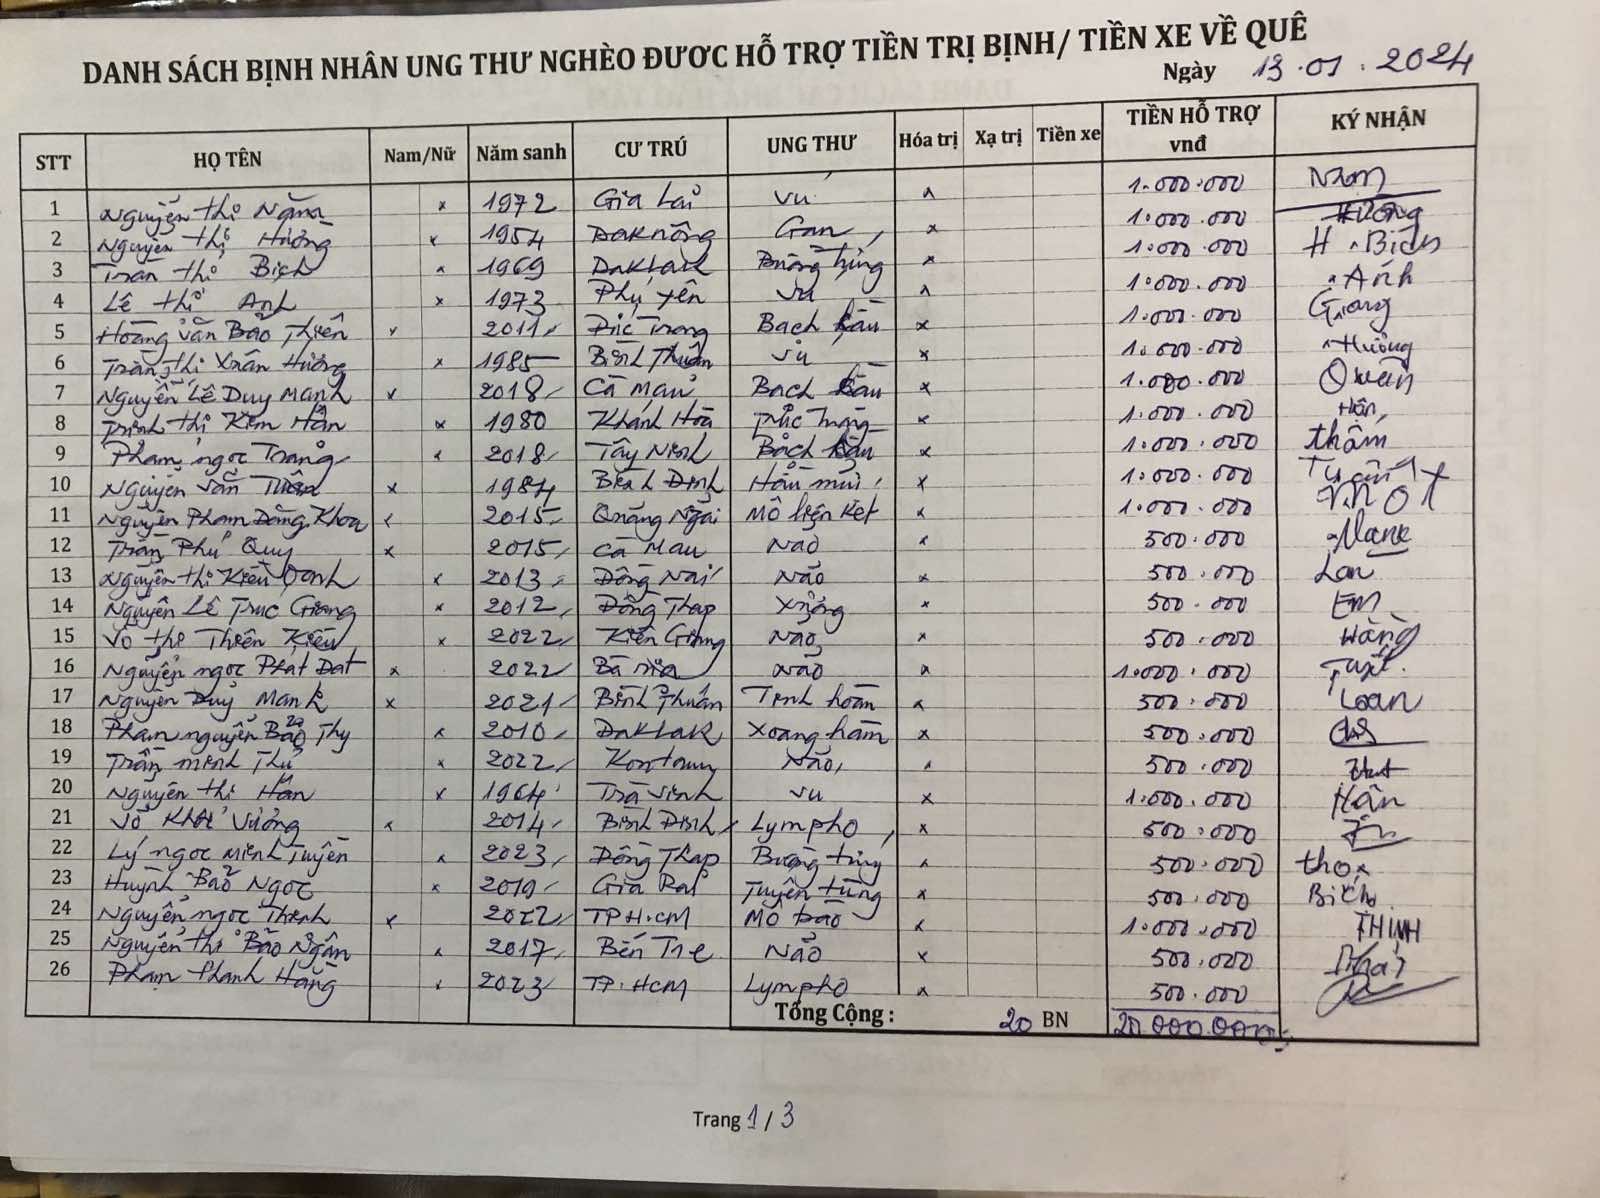 DANH SÁCH BỊNH NHÂN UNG THƯ NGHÈO ĐƯƠC HỖ TRỢ TIỀN TRỊ BỊNH/ TIỀN XE VỀ QUÊ
Ngày 13.01.2024
STT HỌ TÊN Nam/Nữ Năm sanh CƯ TRÚ UNG THƯ Hóa trị Xạ trị Tiền xe TIỀN HỖ TRỢ vnđ KÝ NHẬN
1 Nguyễn thị Năm x 1972 Gia Lai Vú x 1.000.000 Năm
2 Nguyễn thị Hường x 1954 Daknông Gan x 1.000.000 Hường
3 Trần thị Bích x 1969 Daklak Buồng trứng x 1.000.000 H. Bích
4 Lê thị Anh x 1973 Phú Yên Vú x 1.000.000 Ánh
5 Hoàng văn Bảo Thiên x 2011 Đức Trọng Bạch cầu x 1.000.000 Giang
6 Trần thị Xuân Hương x 1985 Bình Thuận Vú x 1.000.000 Hương
7 Nguyễn Lê Duy Mạnh x 2018 Cà Mau Bạch cầu x 1.000.000 Quân
8 Trịnh thị Kim Hân x 1980 Khánh Hòa Trực tràng x 1.000.000 Hân
9 Phạm ngọc Trang x 2018 Tây Ninh Bạch cầu x 1.000.000 thắm
10 Nguyễn Văn Tuấn x 1984 Bình Định Hầu mũi x 1.000.000
11 Nguyễn Phạm Đăng Khoa x 2015 Quảng Ngãi Mô liên kết x 1.000.000
12 Trần Phú Quy x 2015 Cà Mau Não x 500.000
13 Nguyễn thị Kiều Oanh x 2013 Đồng Nai Não x 500.000 Lan
14 Nguyễn Lê Trúc Giang x 2012 Đồng Tháp Xương x 500.000 Em
15 Võ thị Thiên Kiều x 2022 Kiên Giang Não x 500.000 Hằng
16 Nguyễn ngọc Phát Đạt x 2022 Bà rịa Não x 1.000.000 Tuyết
17 Nguyễn Duy Mạnh x 2021 Bình Thuận Tinh hoàn x 500.000 Loan
18 Phạm nguyễn Bảo Thy x 2010 Daklak Xoang hàm x 500.000
19 Trần minh Thư x 2022 Kontum Não x 500.000
20 Nguyễn thị Hân x 1964 Trà Vinh Vú x 1.000.000 Hân
21 Võ Khôi Vương x 2014 Bình Định Lympho x 500.000
22 Lý ngọc Minh Tuyền x 2023 Đồng Tháp Buồng trứng x 500.000 thoa
23 Huỳnh Bảo Ngọc x 2019 Gia Rai Tuyến tùng x 500.000 Bích
24 Nguyễn ngọc Thịnh x 2022 TPH.CM Mô bào x 1.000.000 THỊNH
25 Nguyễn thị Bảo Ngân x 2017 Bến Tre Não x 500.000
26 Phạm Thanh Hằng x 2023 TP.HCM Lympho x 500.000
Tổng Cộng : 20 BN 20.000.000đ
Trang 1 / 3